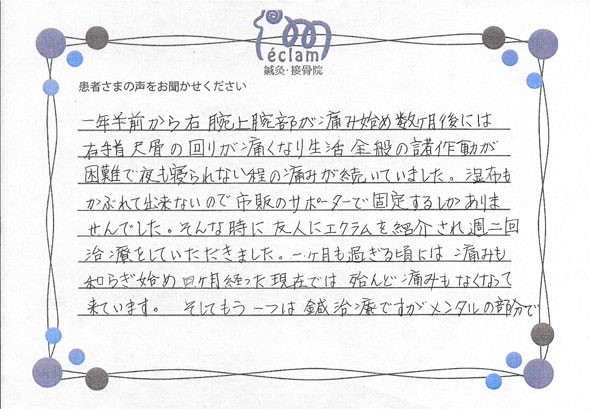 éclam
鍼灸・接骨院
患者さまの声をお聞かせください
一年半前から右腕上腕部が痛み始め数ヶ月後には
右手首尺骨の回りが痛くなり生活全般の諸作動が
困難で夜も寝られない程の痛みが続いていました。湿布も
かぶれて出来ないので市販のサポーターで固定するしかありま
せんでした。そんな時に友人にエクラムを紹介され週二回
治療をしていただきました。一ヶ月も過ぎる頃には痛みも
和らぎ始め四ヶ月経った現在では殆んど痛みもなくなって
来ています。そしてもう一つは鍼治療ですがメンタルの部分で